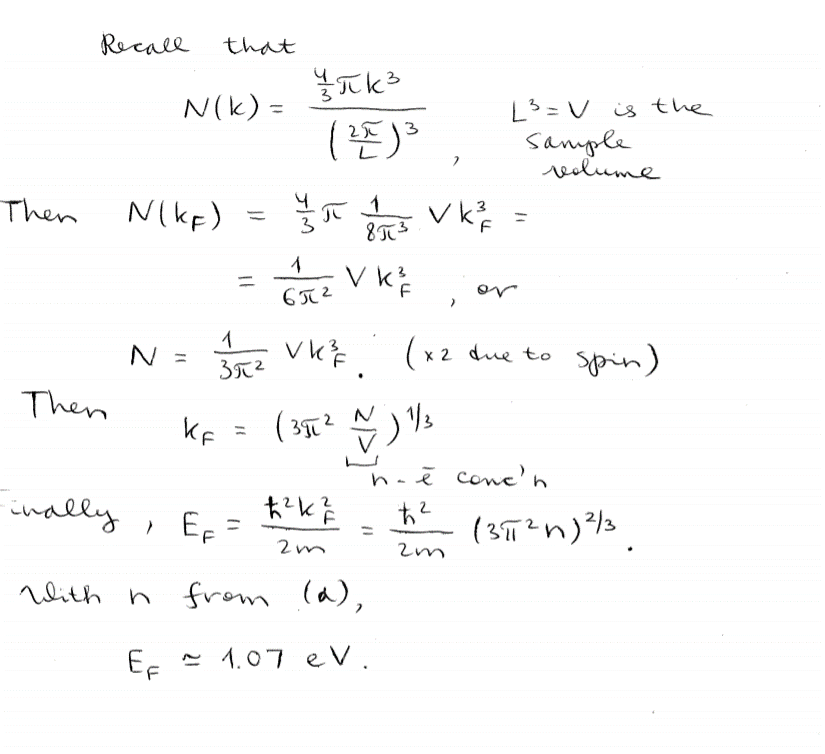 Recall that
N(k) = \frac{\frac{4}{3}πk^3}{(\frac{2π}{L})^3} , L^3 = V is the sample volume
Then N(k_F) = \frac{4}{3}π \frac{1}{8π^3} V k_F^3 =
= \frac{1}{6π^2} V k_F^3 , or
N = \frac{1}{3π^2} V k_F^3 . (×2 due to spin)
Then
k_F = (3π^2 \frac{N}{V})^{1/3}
n - ē conc'n
Finally, E_F = \frac{ħ^2 k_F^2}{2m} = \frac{ħ^2}{2m} (3π^2 n)^{2/3} .
With n from (a),
E_F ≃ 1.07 eV.